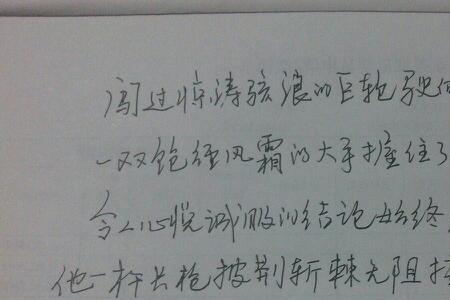 闯过惊涛骇浪的巨轮驶
一双饱经风霜的大手握住了
令人心悦诚服的结论始终
他一杆长枪披荆斩棘无阻